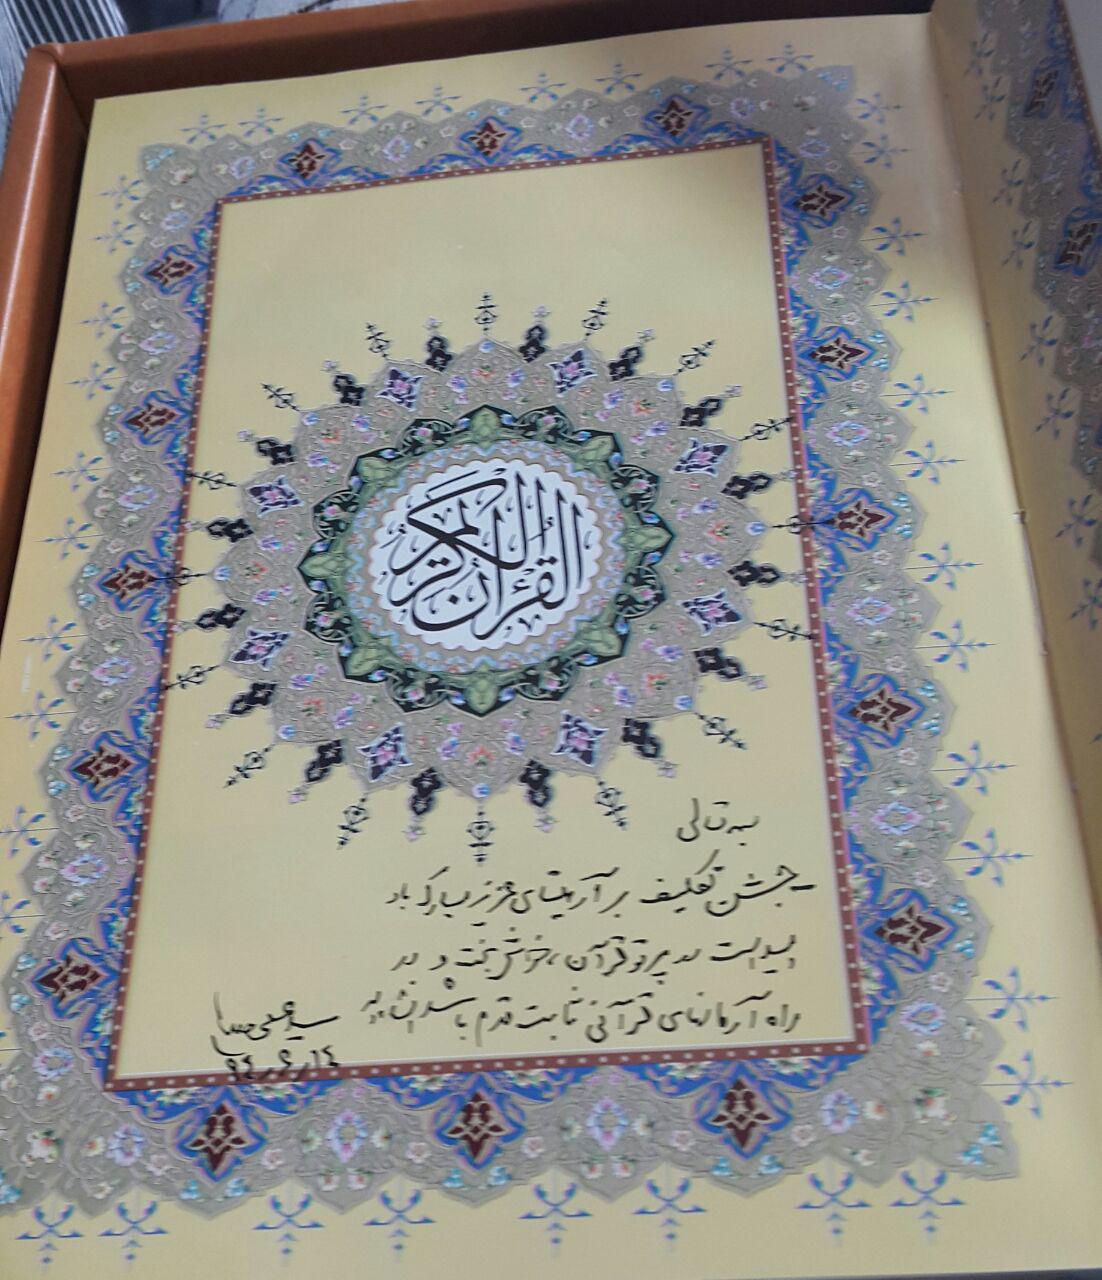 القرآن الکریم
بسمه تعالی
جشن تکلیف بر آرمیتای عزیز مبارک باد
امید است در پرتو قرآن، خوش بخت و در
راه آرمانهای قرآنی ثابت قدم باشد انشاء...
سید